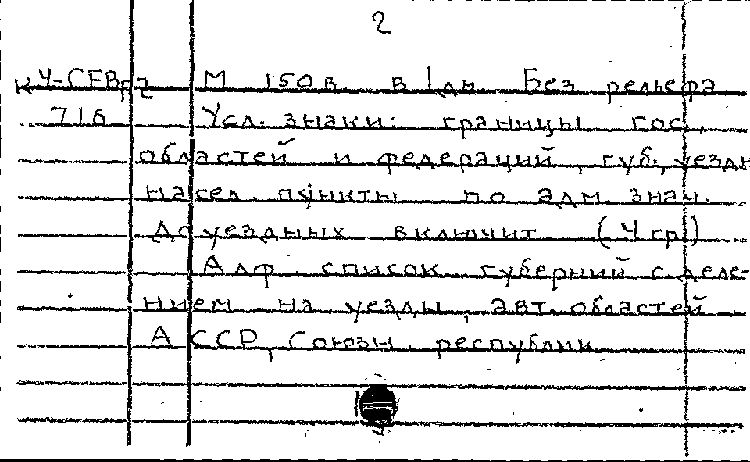 2
К 4-СЕВрz М 150 в. в 1 дм. Без рельефа
716 Усл. знаки: границы гос.,
областей и федераций, губ., уездн
насел. пункты по адм. знач.
до уездных включит (4 гр.)
Алф. список губерний с деле-
нием на уезды, авт. областей
АССР, Союзн. республик